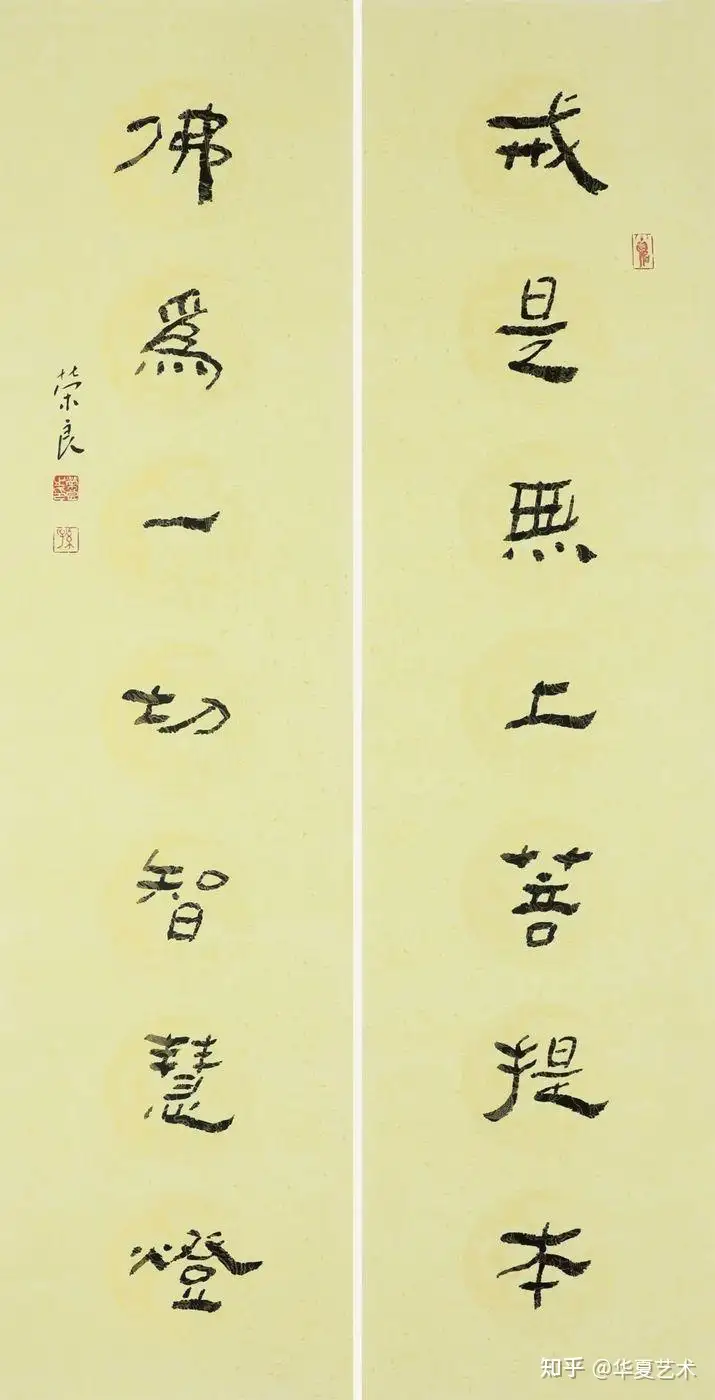 戒是無上菩提本
佛爲一切智慧燈
荣良
孫
知乎 @华夏艺术